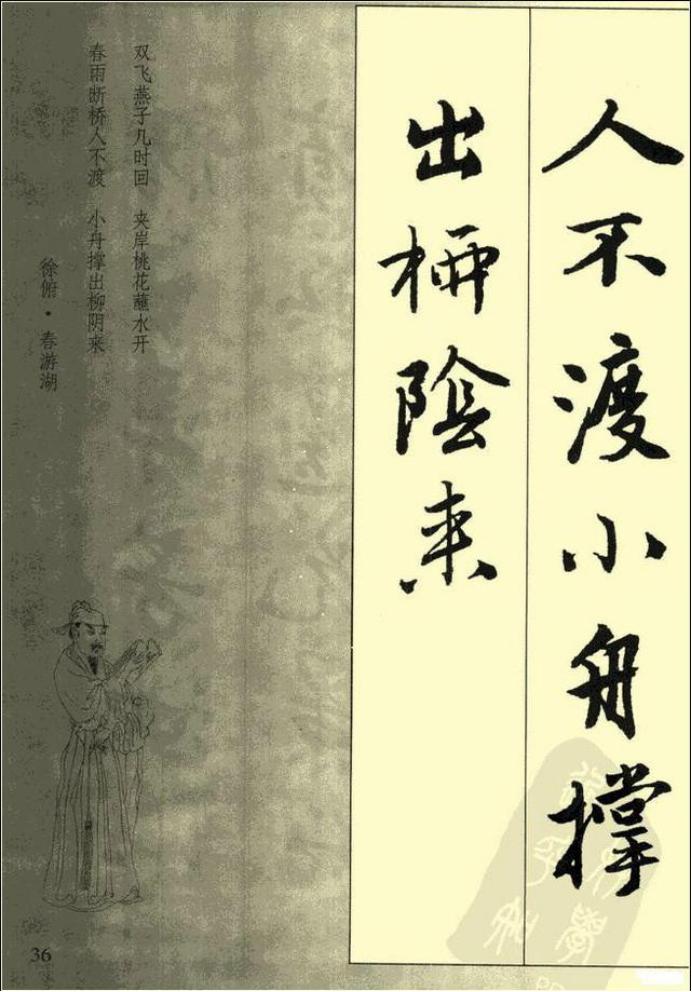 人不渡小舟撑
出桺陰来
双飞燕子几时回 夹岸桃花蘸水开
春雨断桥人不渡 小舟撑出柳阴来
徐俯·春游湖
36